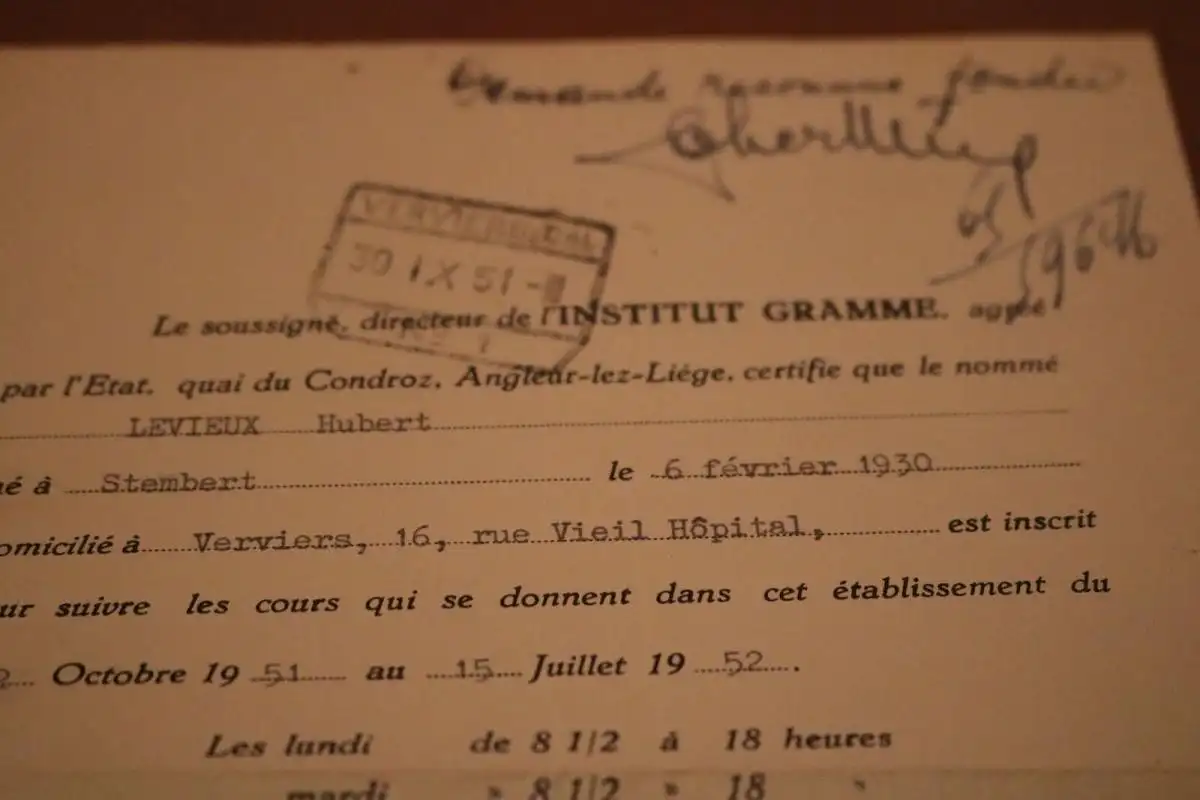 Demande reconnue fondée
30 IX 51 -
Le soussigné, directeur de l'INSTITUT GRAMME, agréé
par l'Etat, quai du Condroz, Angleur-lez-Liége, certifie que le nommé
LEVIEUX Hubert
né à Stembert le 6 février 1930
omicilié à Verviers, 16, rue Vieil Hôpital, est inscrit
ur suivre les cours qui se donnent dans cet établissement du
2 Octobre 19 51 au 15 Juillet 19 52.
Les lundi de 8 1/2 à 18 heures
mardi » 8 1/2 » 18 »